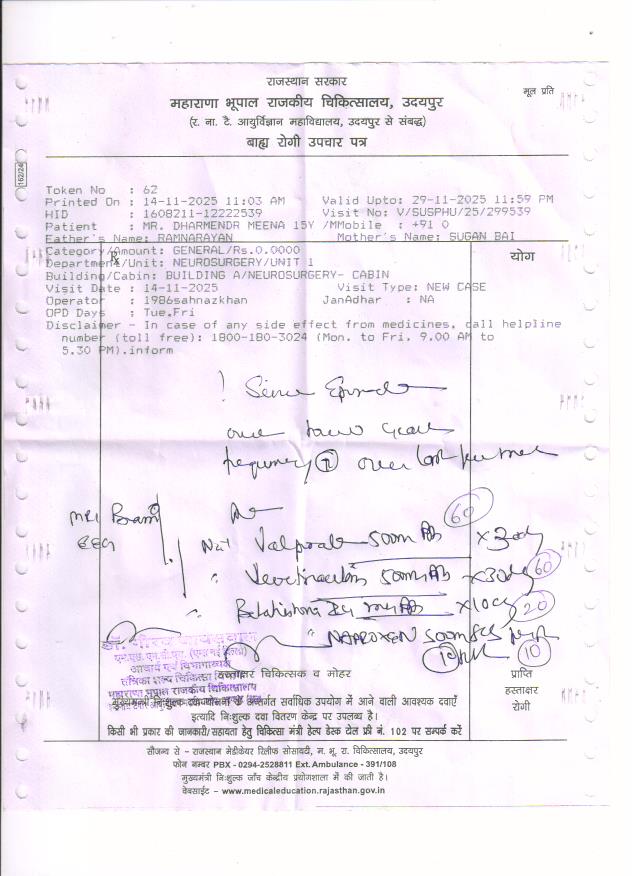 राजस्थान सरकार
मूल प्रति
महाराणा भूपाल राजकीय चिकित्सालय, उदयपुर
(र. ना. टै. आयुर्विज्ञान महाविद्यालय, उदयपुर से संबद्ध)
बाह्य रोगी उपचार पत्र
162/24
Token No : 62
Printed On : 14-11-2025 11:03 AM Valid Upto: 29-11-2025 11:59 PM
HID : 1608211-12222539 Visit No: V/SUSPHU/25/299539
Patient : MR. DHARMENDR MEENA 15Y /MMobile : +91 0
Father's Name: RAMNARAYAN Mother's Name: SUGAN BAI
Category/Amount: GENERAL/Rs.0.0000
योग
Department/Unit: NEUROSURGERY/UNIT 1
Building/Cabin: BUILDING A/NEUROSURGERY- CABIN
Visit Date : 14-11-2025 Visit Type: NEW CASE
Operator : 1986sahnazkhan JanAdhar : NA
OPD Days : Tue,Fri
Disclaimer - In case of any side effect from medicines, call helpline
number (toll free): 1800-180-3024 (Mon. to Fri. 9.00 AM to
5.30 PM).inform
frequency over last
MRI Brain
EEG
60
Valproate 500m x 30dy
500m x 30dy 60
Betahistine x 10d 20
NAPROXEN 500m
10 10
आचार्य एवं विभागाध्यक्ष
महाराणा भूपाल राजकीय चिकित्सालय
हस्ताक्षर चिकित्सक व मोहर
प्राप्ति
हस्ताक्षर
रोगी
मुख्यमंत्री निःशुल्क दवा योजना के अन्तर्गत सर्वाधिक उपयोग में आने वाली आवश्यक दवाएँ
इत्यादि निःशुल्क दवा वितरण केन्द्र पर उपलब्ध है।
किसी भी प्रकार की जानकारी/सहायता हेतु चिकित्सा मंत्री हेल्प डेस्क टोल फ्री नं. 102 पर सम्पर्क करें
सौजन्य से - राजस्थान मेडीकेयर रिलीफ सोसायटी, म. भू. रा. चिकित्सालय, उदयपुर
फोन नम्बर PBX - 0294-2528811 Ext. Ambulance - 391/108
मुख्यमंत्री निःशुल्क जाँच केन्द्रीय प्रयोगशाला में की जाती है।
वेबसाईट - www.medicaleducation.rajasthan.gov.in